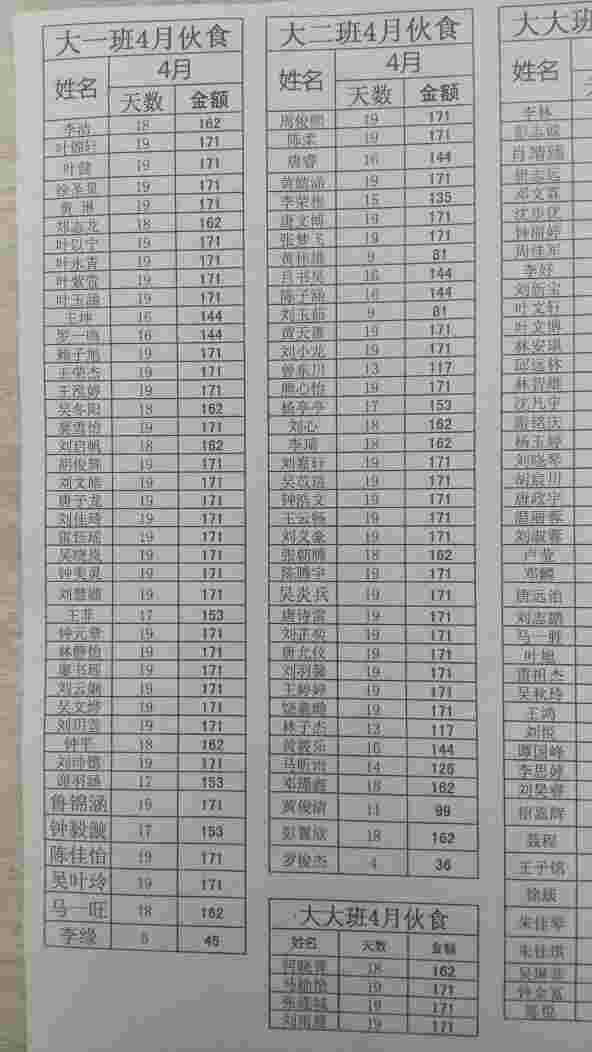 大一班4月伙食
姓名 4月
天数 金额
李浩 18 162
叶锦轩 19 171
叶健 19 171
徐圣昊 19 171
黄琳 19 171
郑志龙 18 162
叶以宁 19 171
叶永青 19 171
叶紫萱 19 171
叶玉涵 19 171
王坤 16 144
罗一鸣 16 144
赖子旭 19 171
王荣杰 19 171
王泓婷 19 171
吴冬阳 18 162
吴雪怡 19 171
刘启帆 18 162
胡俊辉 19 171
刘文皓 19 171
唐子龙 19 171
刘佳琦 19 171
19 171
吴晓岚 19 171
钟美灵 19 171
刘慧婧 19 171
王菲 17 153
钟元章 19 171
林静怡 19 171
廖书瑶 19 171
刘云娴 19 171
吴文婷 19 171
刘玥萱 19 171
钟平 18 162
刘帅锴 19 171
邱羽涵 17 153
鲁锦涵 19 171
钟毅颜 17 153
陈佳怡 19 171
吴叶玲 19 171
马一旺 18 162
李缘 5 45
大二班4月伙食
姓名 4月
天数 金额
周俊熙 19 171
陈柔 19 171
唐睿 16 144
黄皓涵 19 171
李荣彬 15 135
唐文博 19 171
张梦飞 19 171
黄伟雄 9 81
吕书昊 16 144
陈子涵 16 144
刘玉茹 9 81
黄天雅 19 171
刘小龙 19 171
曾东川 13 117
熊心怡 19 171
杨亭亭 17 153
刘心 18 162
李瑶 18 162
刘嘉轩 19 171
19 171
钟浩文 19 171
王云畅 19 171
刘文豪 19 171
张朝腾 18 162
陈腾宇 19 171
吴炎兵 19 171
唐诗雷 19 171
刘芷萱 19 171
唐允仪 19 171
刘羽馨 19 171
王婷婷 19 171
饶童瑜 19 171
林子杰 13 117
黄筱乐 16 144
马昕雨 14 126
邓瑾鑫 18 162
黄俊清 11 99
彭馨欣 18 162
罗俊杰 4 36
大大班4月伙食
姓名 天数 金额
18 162
19 171
19 171
刘雨馨 19 171
大大班
姓名
李林
彭志诚
肖靖瑶
胡志远
邓文霖
沈步优
钟丽婷
周佳军
李好
刘新宝
叶文轩
叶文博
林安琪
邱远林
林智雄
沈凡宇
谢铭庆
杨玉婷
刘晓琴
胡宸川
唐政宇
温丽蓉
刘淑蓉
卢萱
邓麟
唐远泊
刘志鹏
马一辉
叶旭
雷祖杰
吴秋玲
王鸿
刘悦
谭国峰
李思婷
刘昊睿
邹嘉辉
聂程
王子铭
徐颀
朱佳琴
朱佳琪
吴琳菲
钟金富